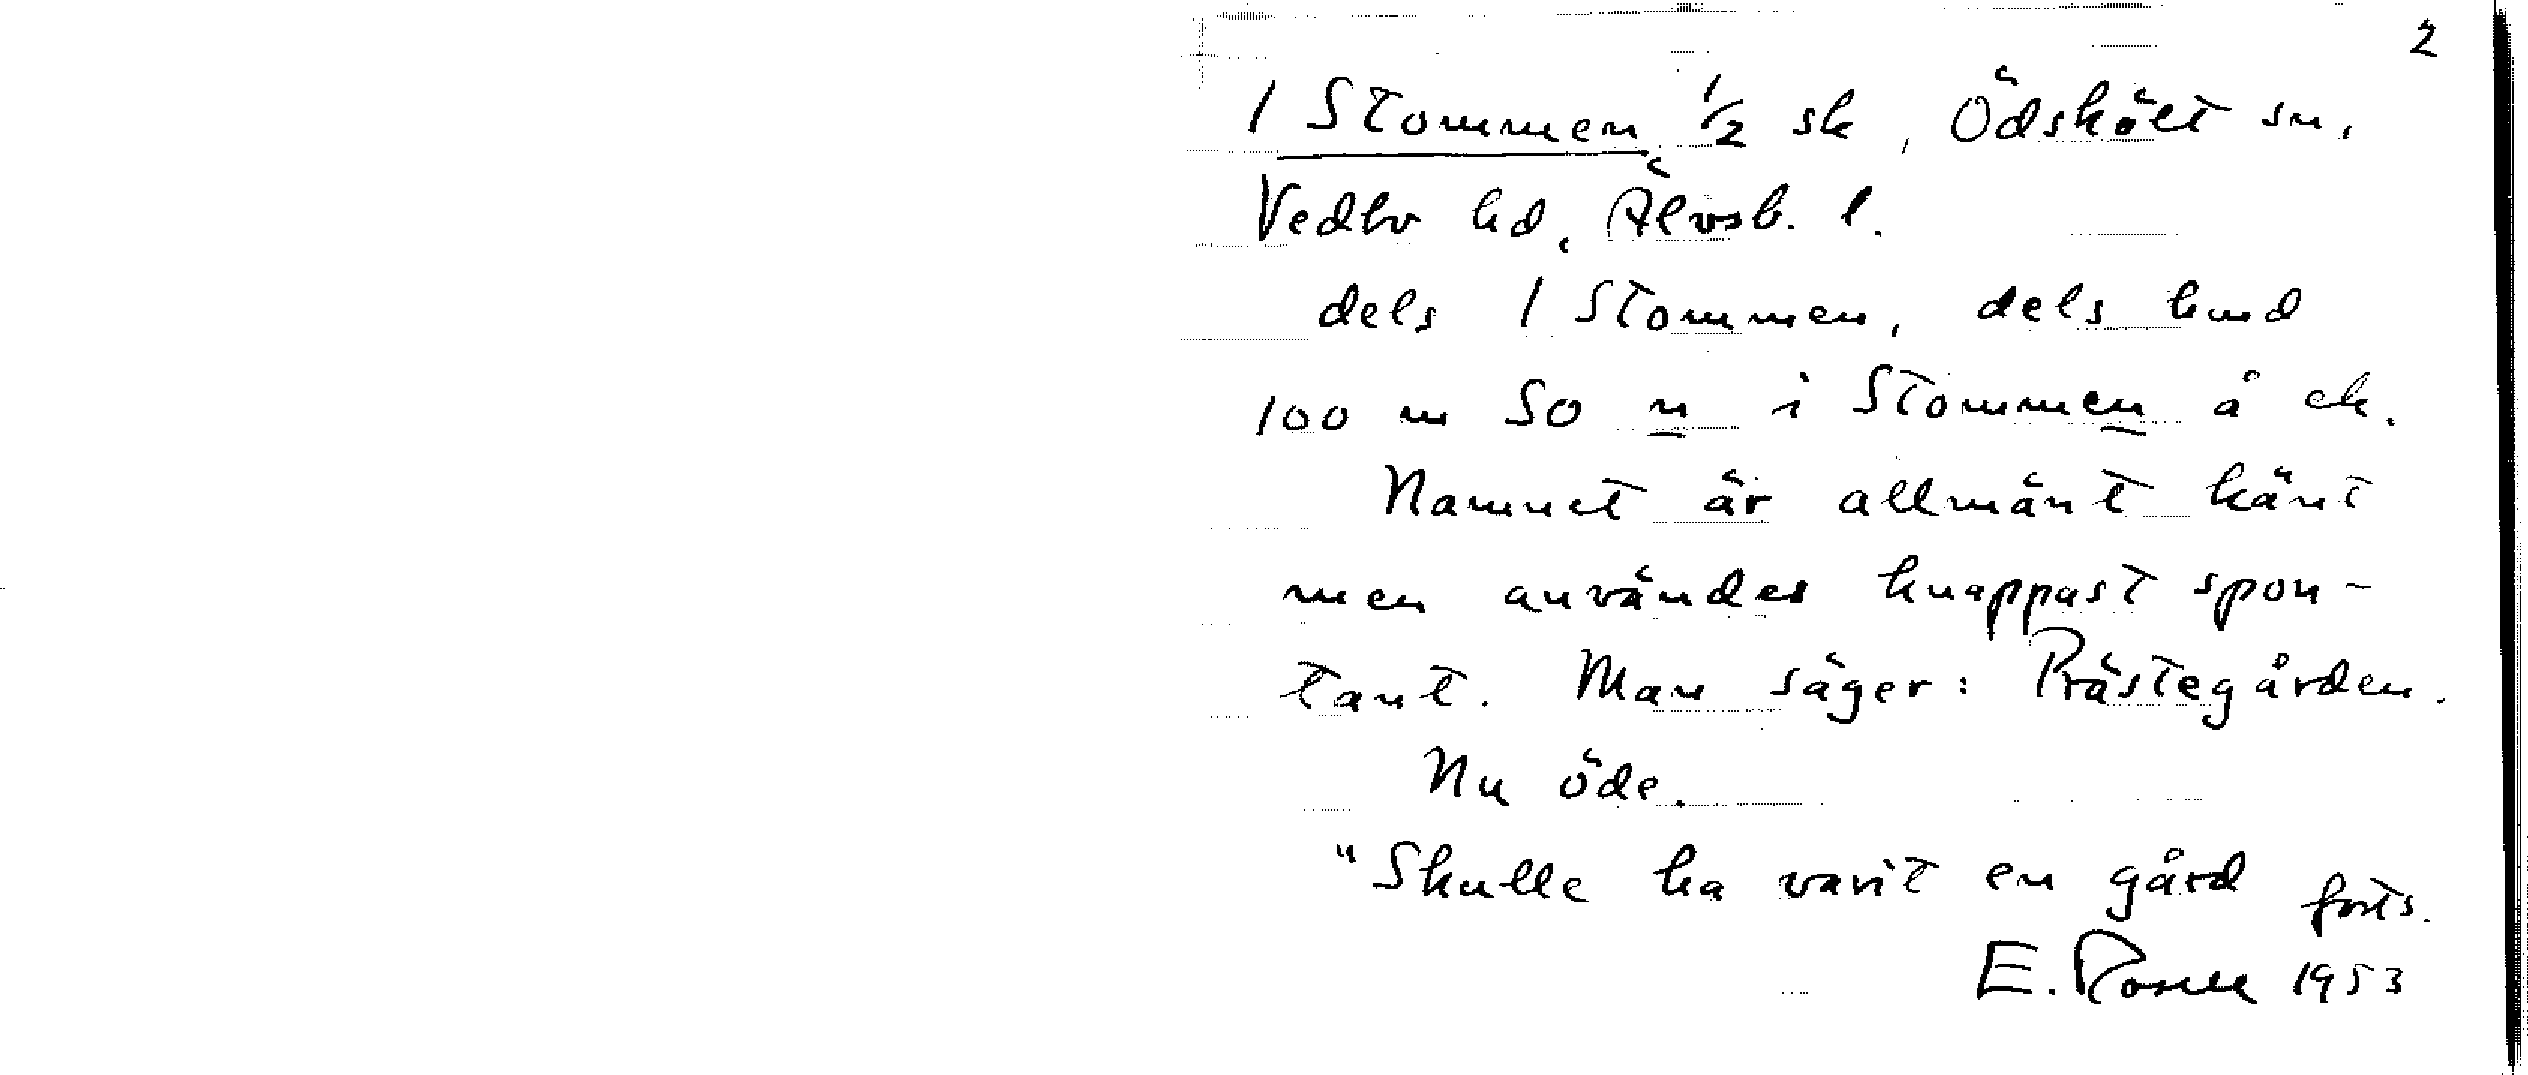 2
1 Stommen 1/2 sk, Ödskölt sn,
Vedbo hd, Älvsb. l.
dels 1 Stommen, dels hmd
100 m SO n i Stommen å ek.
Namnet är allmänt känt
men användes knappast spon-
tant. Man säger: Prästegården.
Nu öde.
"Skulle ha varit en gård forts.
E. Rosell 1953